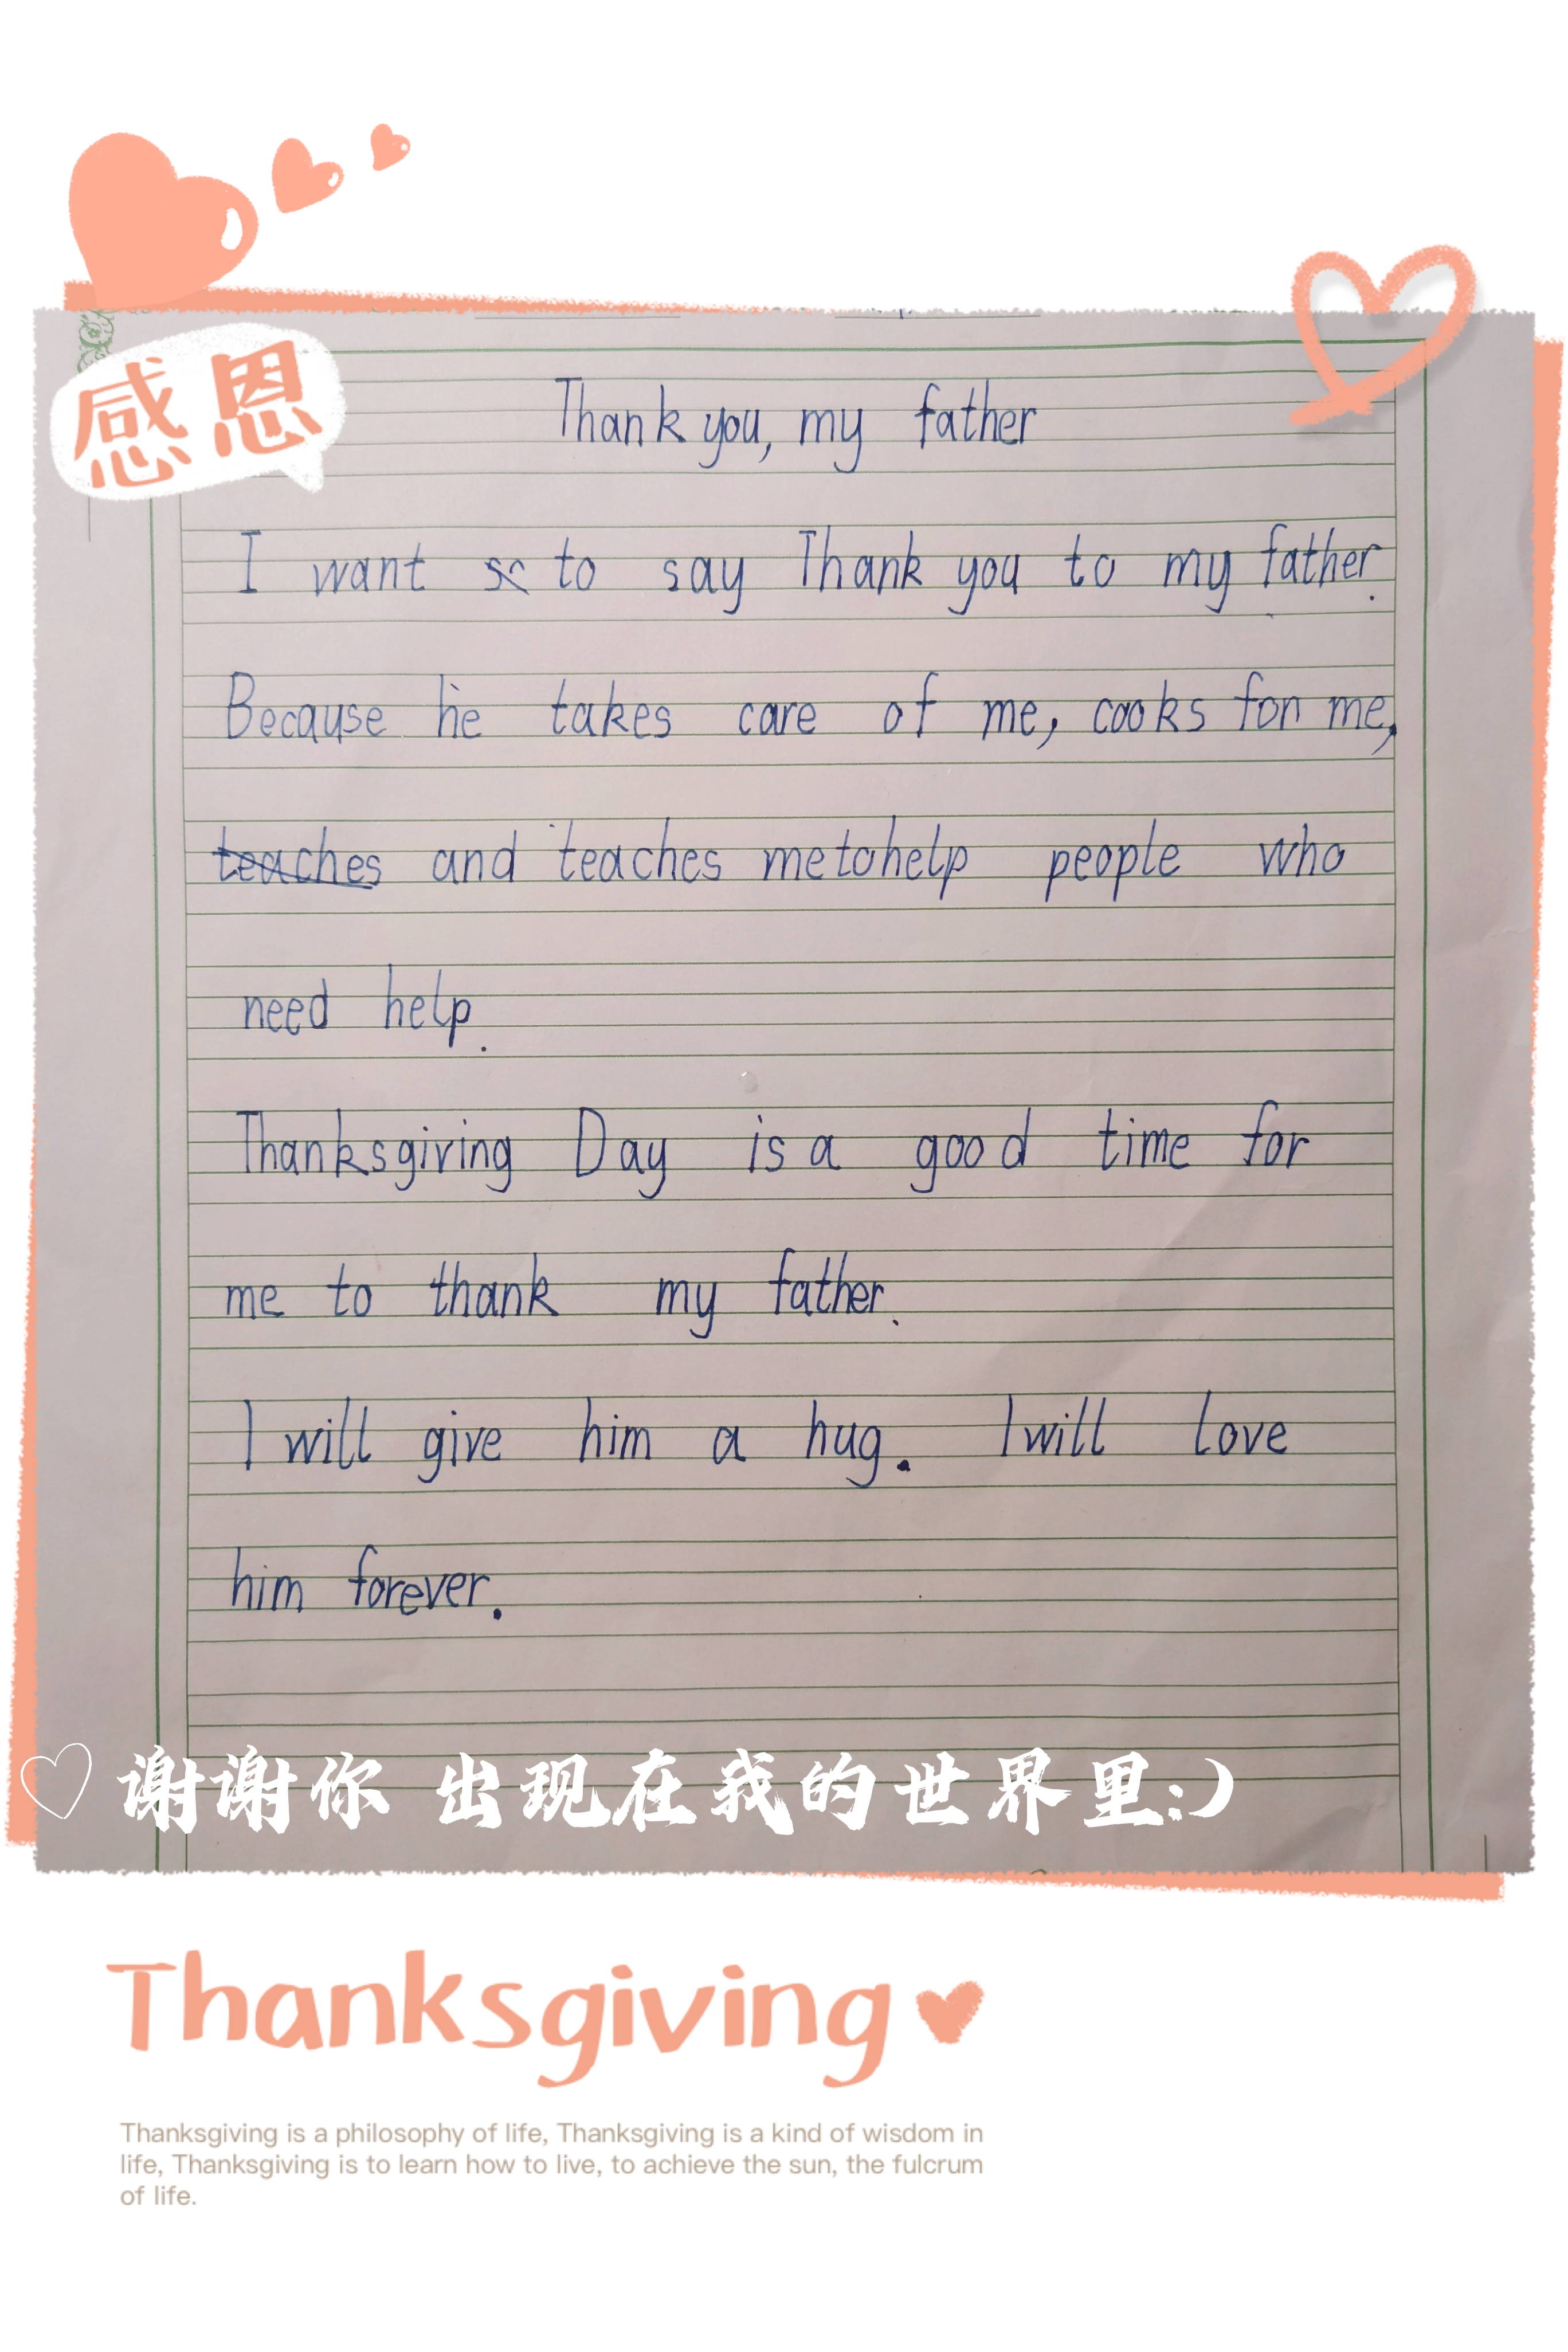 感恩
Thank you, my father
I want to say Thank you to my father.
Because he takes care of me, cooks for me,
teaches and teaches me to help people who
need help.
Thanksgiving Day is a good time for
me to thank my father.
I will give him a hug. I will love
him forever.
谢谢你 出现在我的世界里:)
Thanksgiving
Thanksgiving is a philosophy of life, Thanksgiving is a kind of wisdom in
life, Thanksgiving is to learn how to live, to achieve the sun, the fulcrum
of life.